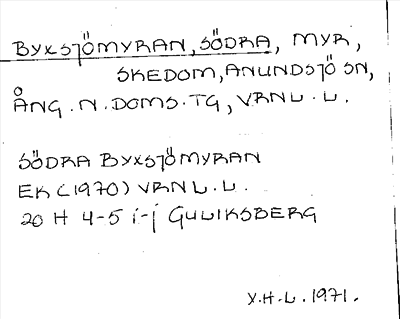 BYXSJÖMYRAN, SÖDRA, MYR,
SKEDOM, ANUNDSJÖ SN,
ÅNG. N. DOMS. TG, VRNL. L.
SÖDRA BYXSJÖMYRAN
EK (1970) VRNL. L.
20 H 4-5 i-j GULIKSBERG
Y. H-L. 1971.